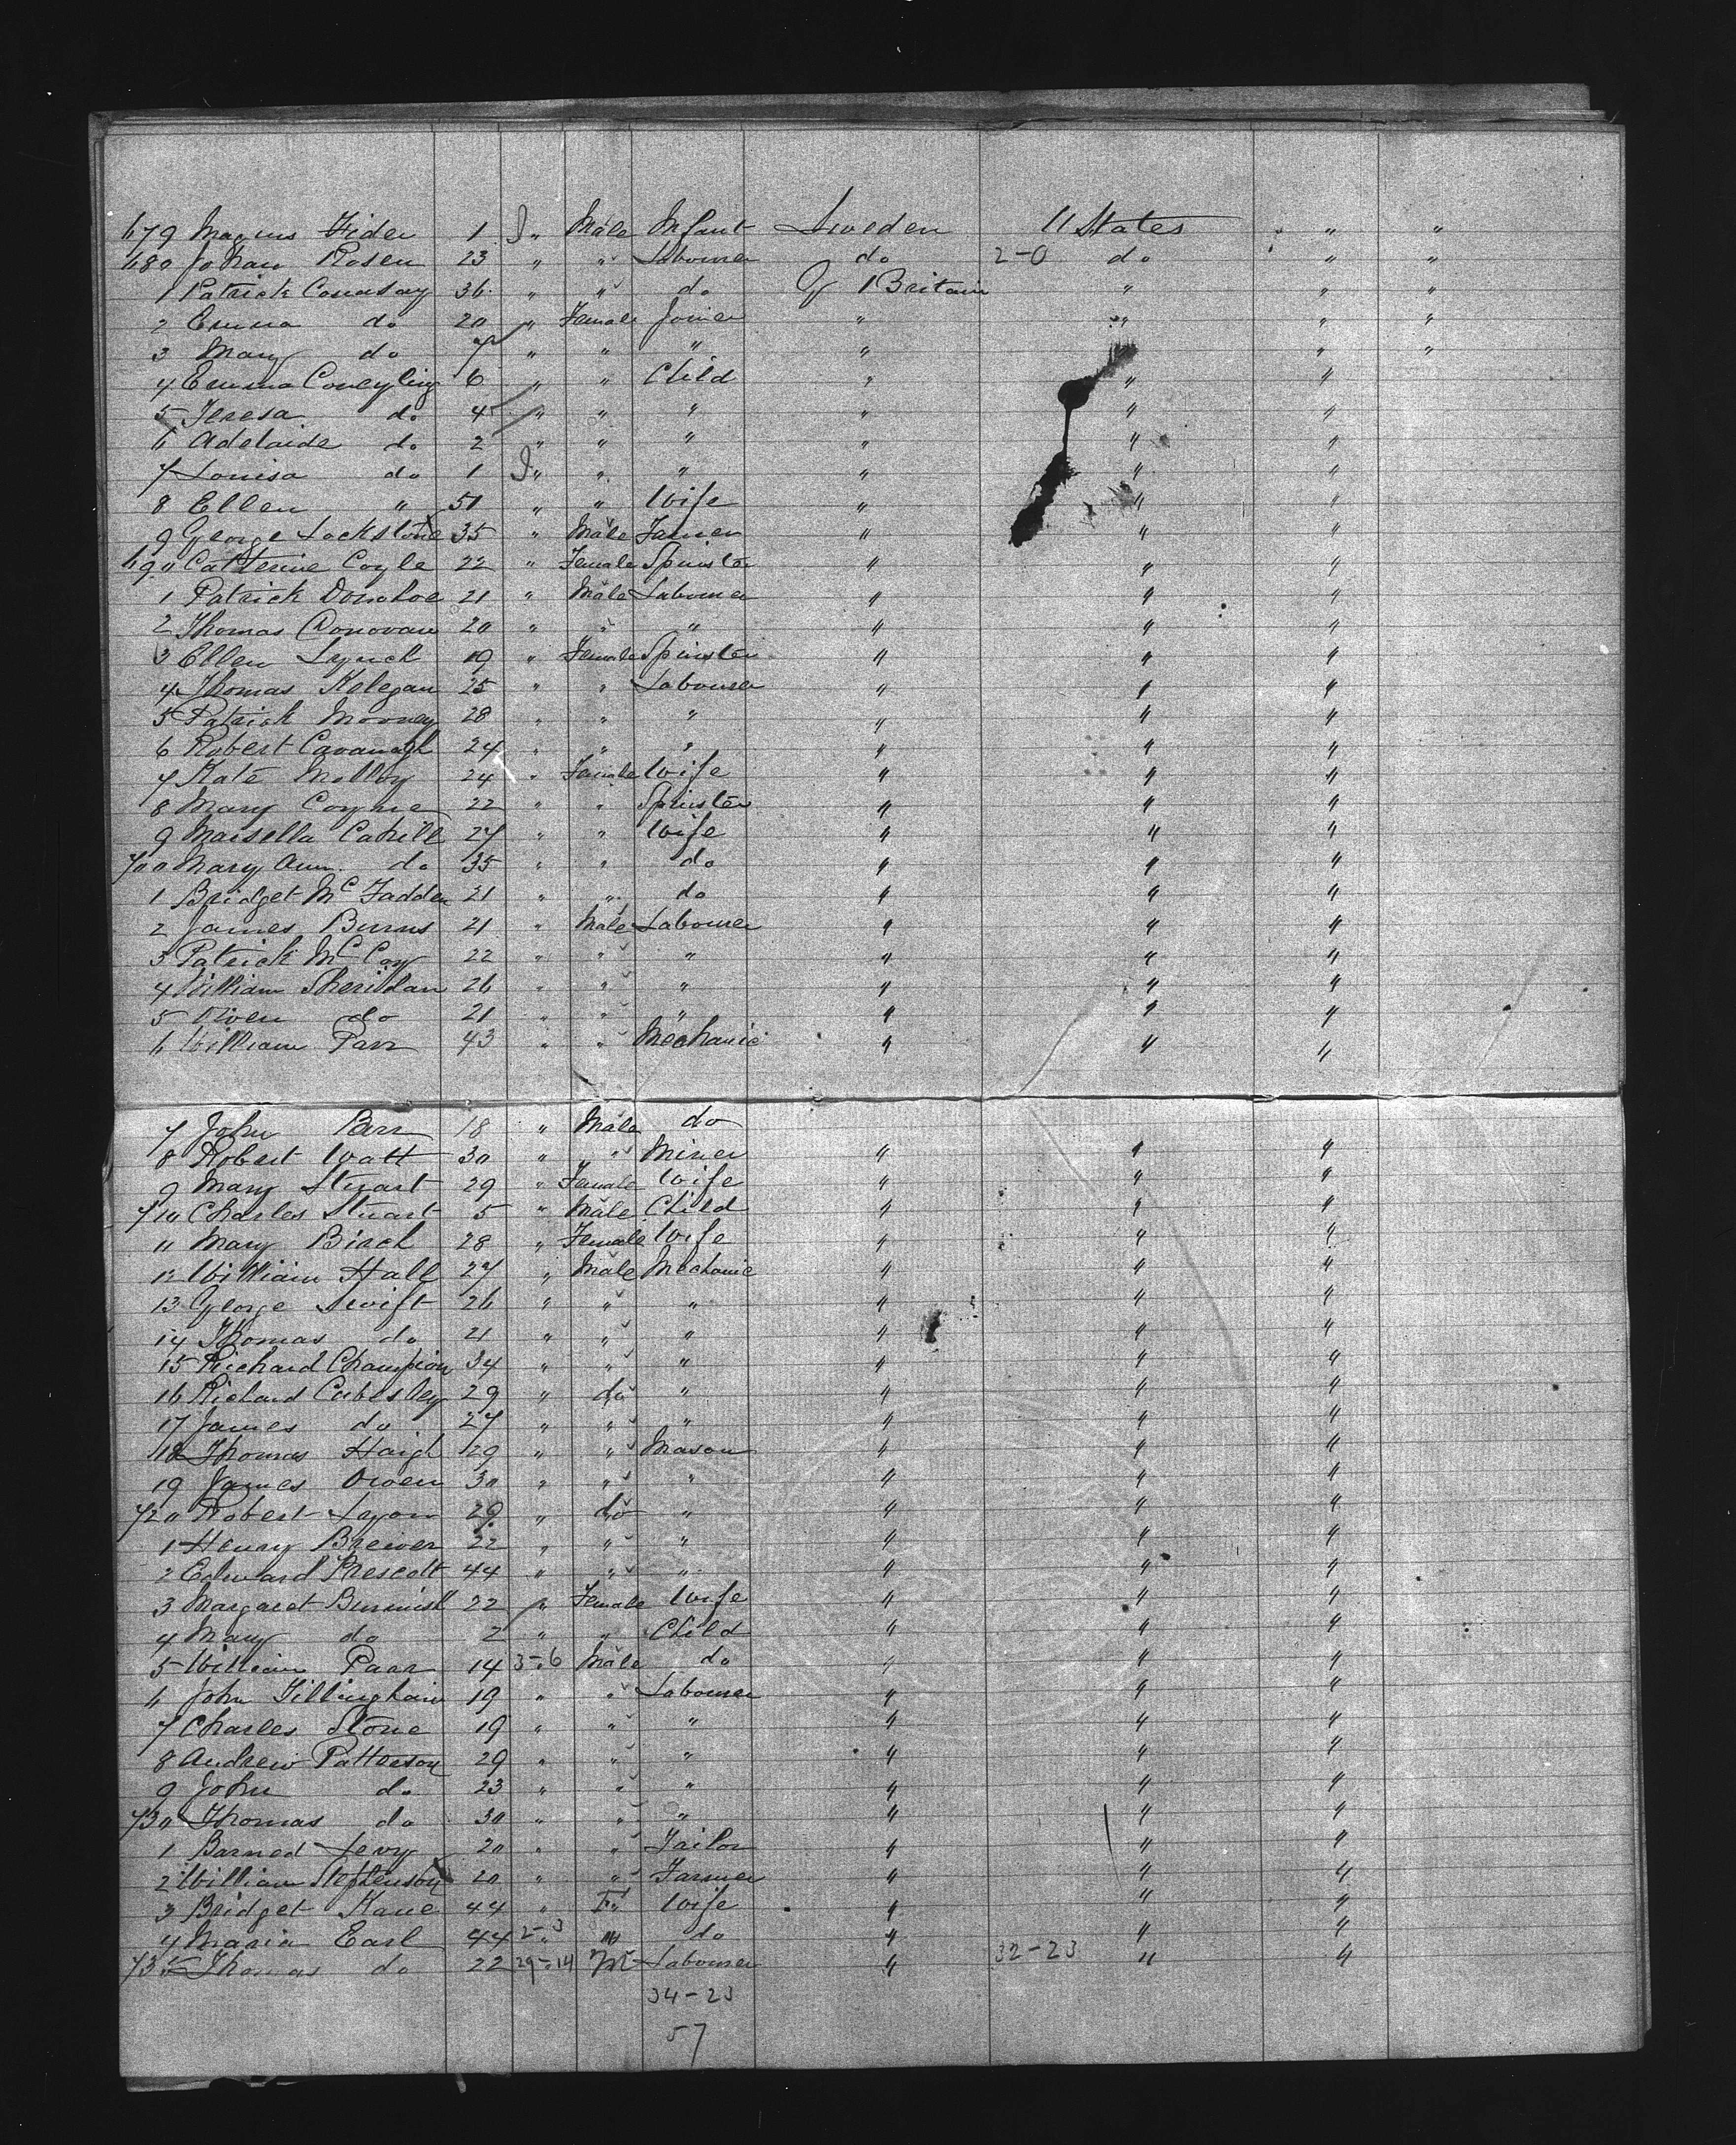 679 Magnus Fider 1 " Male Infant Sweden U States " "
680 Johan Rosen 23 " " Labourer do 2-0 do " "
1 Patrick Conasay 36 " " do G Britain " " "
2 Emma do 20 " Female Joiner " " " "
3 Mary do 7 " " " " " " "
4 Emma Coneyling 6 " " Child " " "
5 Teresa do 4 " " " " " "
6 Adelaide do 2 " " " " " "
7 Louisa do 1 " " " " " "
8 Ellen " 50 " " Wife " " "
9 George Lockstone 35 " Male Farmer " " "
690 Catherine Coyle 22 " Female Spinster " " "
1 Patrick Donohoe 21 " Male Labourer " " "
2 Thomas Donovan 20 " " " " " "
3 Ellen Lynch 19 " Female Spinster " " "
4 Thomas Kelegan 25 " " Labourer " " "
5 Patrick Mooney 28 " " " " " "
6 Robert Cavanagh 24 " " " " " "
7 Kate Molloy 24 " Female Wife " " "
8 Mary Coyne 22 " " Spinster " " "
9 Marsella Cahill 27 " " Wife " " "
700 Mary Ann do 35 " " do " " "
1 Bridget McFadden 21 " " do " " "
2 James Burns 21 " Male Labourer " " "
3 Patrick McCoy 22 " " " " " "
4 William Sheridan 26 " " " " " "
5 Owen do 21 " " " " " "
6 William Parr 43 " " Mechanic " " "
7 John Parr 18 " Male do
8 Robert Watt 30 " " Miner " " "
9 Mary Stuart 29 " Female Wife " " "
710 Charles Stuart 5 " Male Child " " "
11 Mary Birch 28 " Female Wife " " "
12 William Hall 27 " Male Mechanic " " "
13 George Swift 26 " " " " " "
14 Thomas do 21 " " " " " "
15 Richard Champion 34 " " " " " "
16 Richard 29 " do " " " "
17 James do 27 " " " " " "
18 Thomas Haigh 29 " " Mason " " "
19 James Owen 30 " " " " " "
720 Robert Lyon 29 " do " " " "
1 Henry Brewer 22 " " " " " "
2 Edward Prescott 44 " " " " " "
3 Margaret 22 " Female Wife " " "
4 Mary do 2 " " Child " " "
5 William Parr 14 3-6 Male do " " "
6 John 19 " " Labourer " " "
7 Charles Stone 19 " " " " " "
8 Andrew Patterson 29 " " " " " "
9 John do 23 " " " " " "
730 Thomas do 30 " " " " " "
1 Barned Levy 20 " " Tailor " " "
2 William Stephenson 20 " " Farmer " " "
3 Bridget Kane 44 " F Wife " " "
4 Maria Earl 44 2-3 " " do " " "
735 Thomas do 22 29-14 M Labourer " 32-23 " "
34-23
57